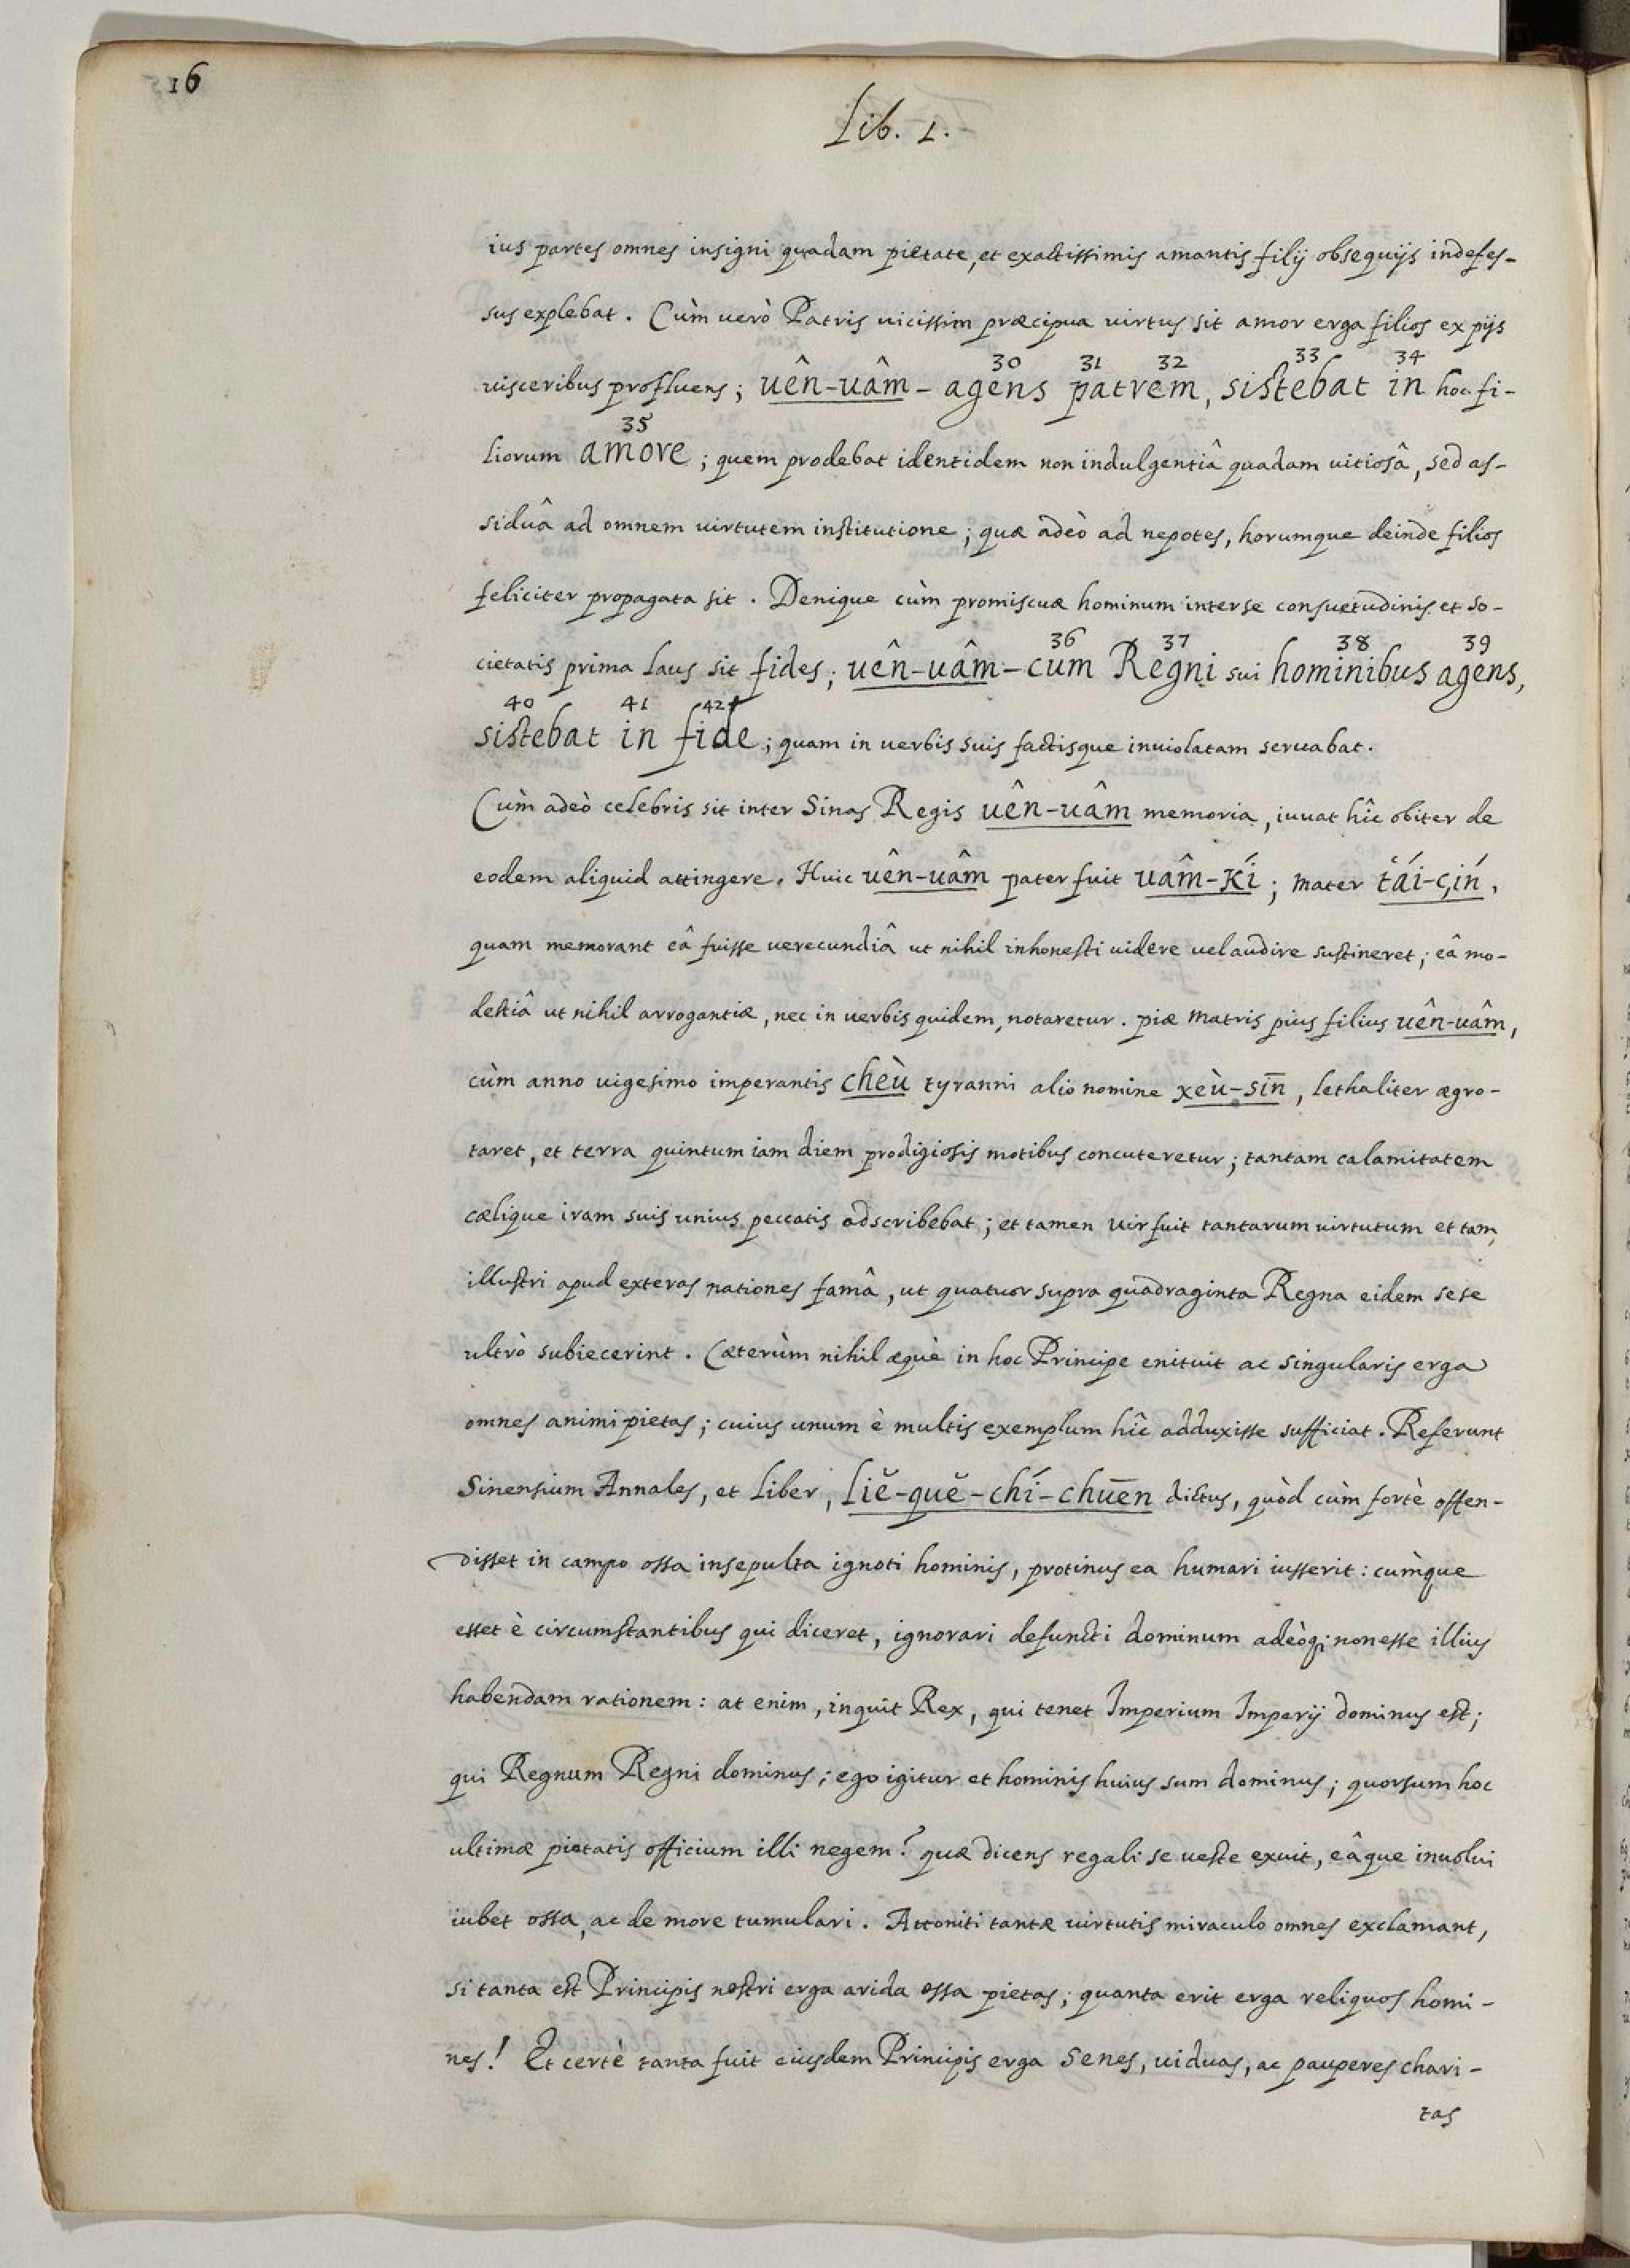 16
Lib. 1.
ius partes omnes insigni quadam pietate, et exactissimis amantis filij obsequijs indefes-
sus explebat. Cùm uerò Patris uicissim præcipua uirtus sit amor erga filios ex pijs
30 31 32 33 34
uisceribus profluens; uên-uâm- agens patrem, sistebat in hoc fi-
35
liorum amore; quem prodebat identidem non indulgentiâ quadam uitiosâ, sed as-
siduâ ad omnem uirtutem institutione; quæ adeò ad nepotes, horumque deinde filios
feliciter propagata sit. Denique cùm promiscuæ hominum inter se consuetudinis et so-
36 37 38 39
cietatis prima laus sit fides; uên-uâm-cum Regni sui hominibus agens,
40 41 42
sistebat in fide; quam in uerbis suis factisque inuiolatam seruabat.
Cùm adeò celebris sit inter Sinas Regis uên-uâm memoria, iuuat hîc obiter de
eodem aliquid attingere. Huic uên-uâm pater fuit uâm-Kí; mater t̔ái-çín,
quam memorant eâ fuisse uerecundiâ ut nihil inhonesti uidere uel audire sustineret; eâ mo-
destiâ ut nihil arrogantiæ, nec in uerbis quidem, notaretur. piæ matris pius filius uên-uâm,
cùm anno uigesimo imperantis cheù tyranni alio nomine xeù-sīn, lethaliter ægro-
taret, et terra quintum iam diem prodigiosis motibus concuteretur; tantam calamitatem
cælique iram suis unius peccatis adscribebat; et tamen uir fuit tantarum uirtutum et tam
illustri apud exteras nationes famâ, ut quatuor supra quadraginta Regna eidem sese
ultrò subiecerint. Cæterùm nihil æquè in hoc Principe enituit ac singularis erga
omnes animi pietas; cuius unum è multis exemplum hîc adduxisse sufficiat. Referunt
Sinensium Annales, et Liber, Liĕ-quĕ-chí-chuēn dictus, quòd cùm fortè offen-
disset in campo ossa insepulta ignoti hominis, protinus ea humari iusserit: cumq̀ue
esset è circumstantibus qui diceret, ignorari defuncti dominum adeòq; non esse illius
habendam rationem: at enim, inquit Rex, qui tenet Imperium Imperij dominus est;
qui Regnum Regni dominus; ego igitur et hominis huius sum dominus; quorsum hoc
ultimæ pietatis officium illi negem? quæ dicens regali se ueste exuit, eâque inuolui
iubet ossa, ac de more tumulari. Attoniti tantæ uirtutis miraculo omnes exclamant,
si tanta est Principis nostri erga arida ossa pietas; quanta erit erga reliquos homi-
nes! Et certè tanta fuit eiusdem Principis erga senes, uiduas, ac pauperes chari-
tas